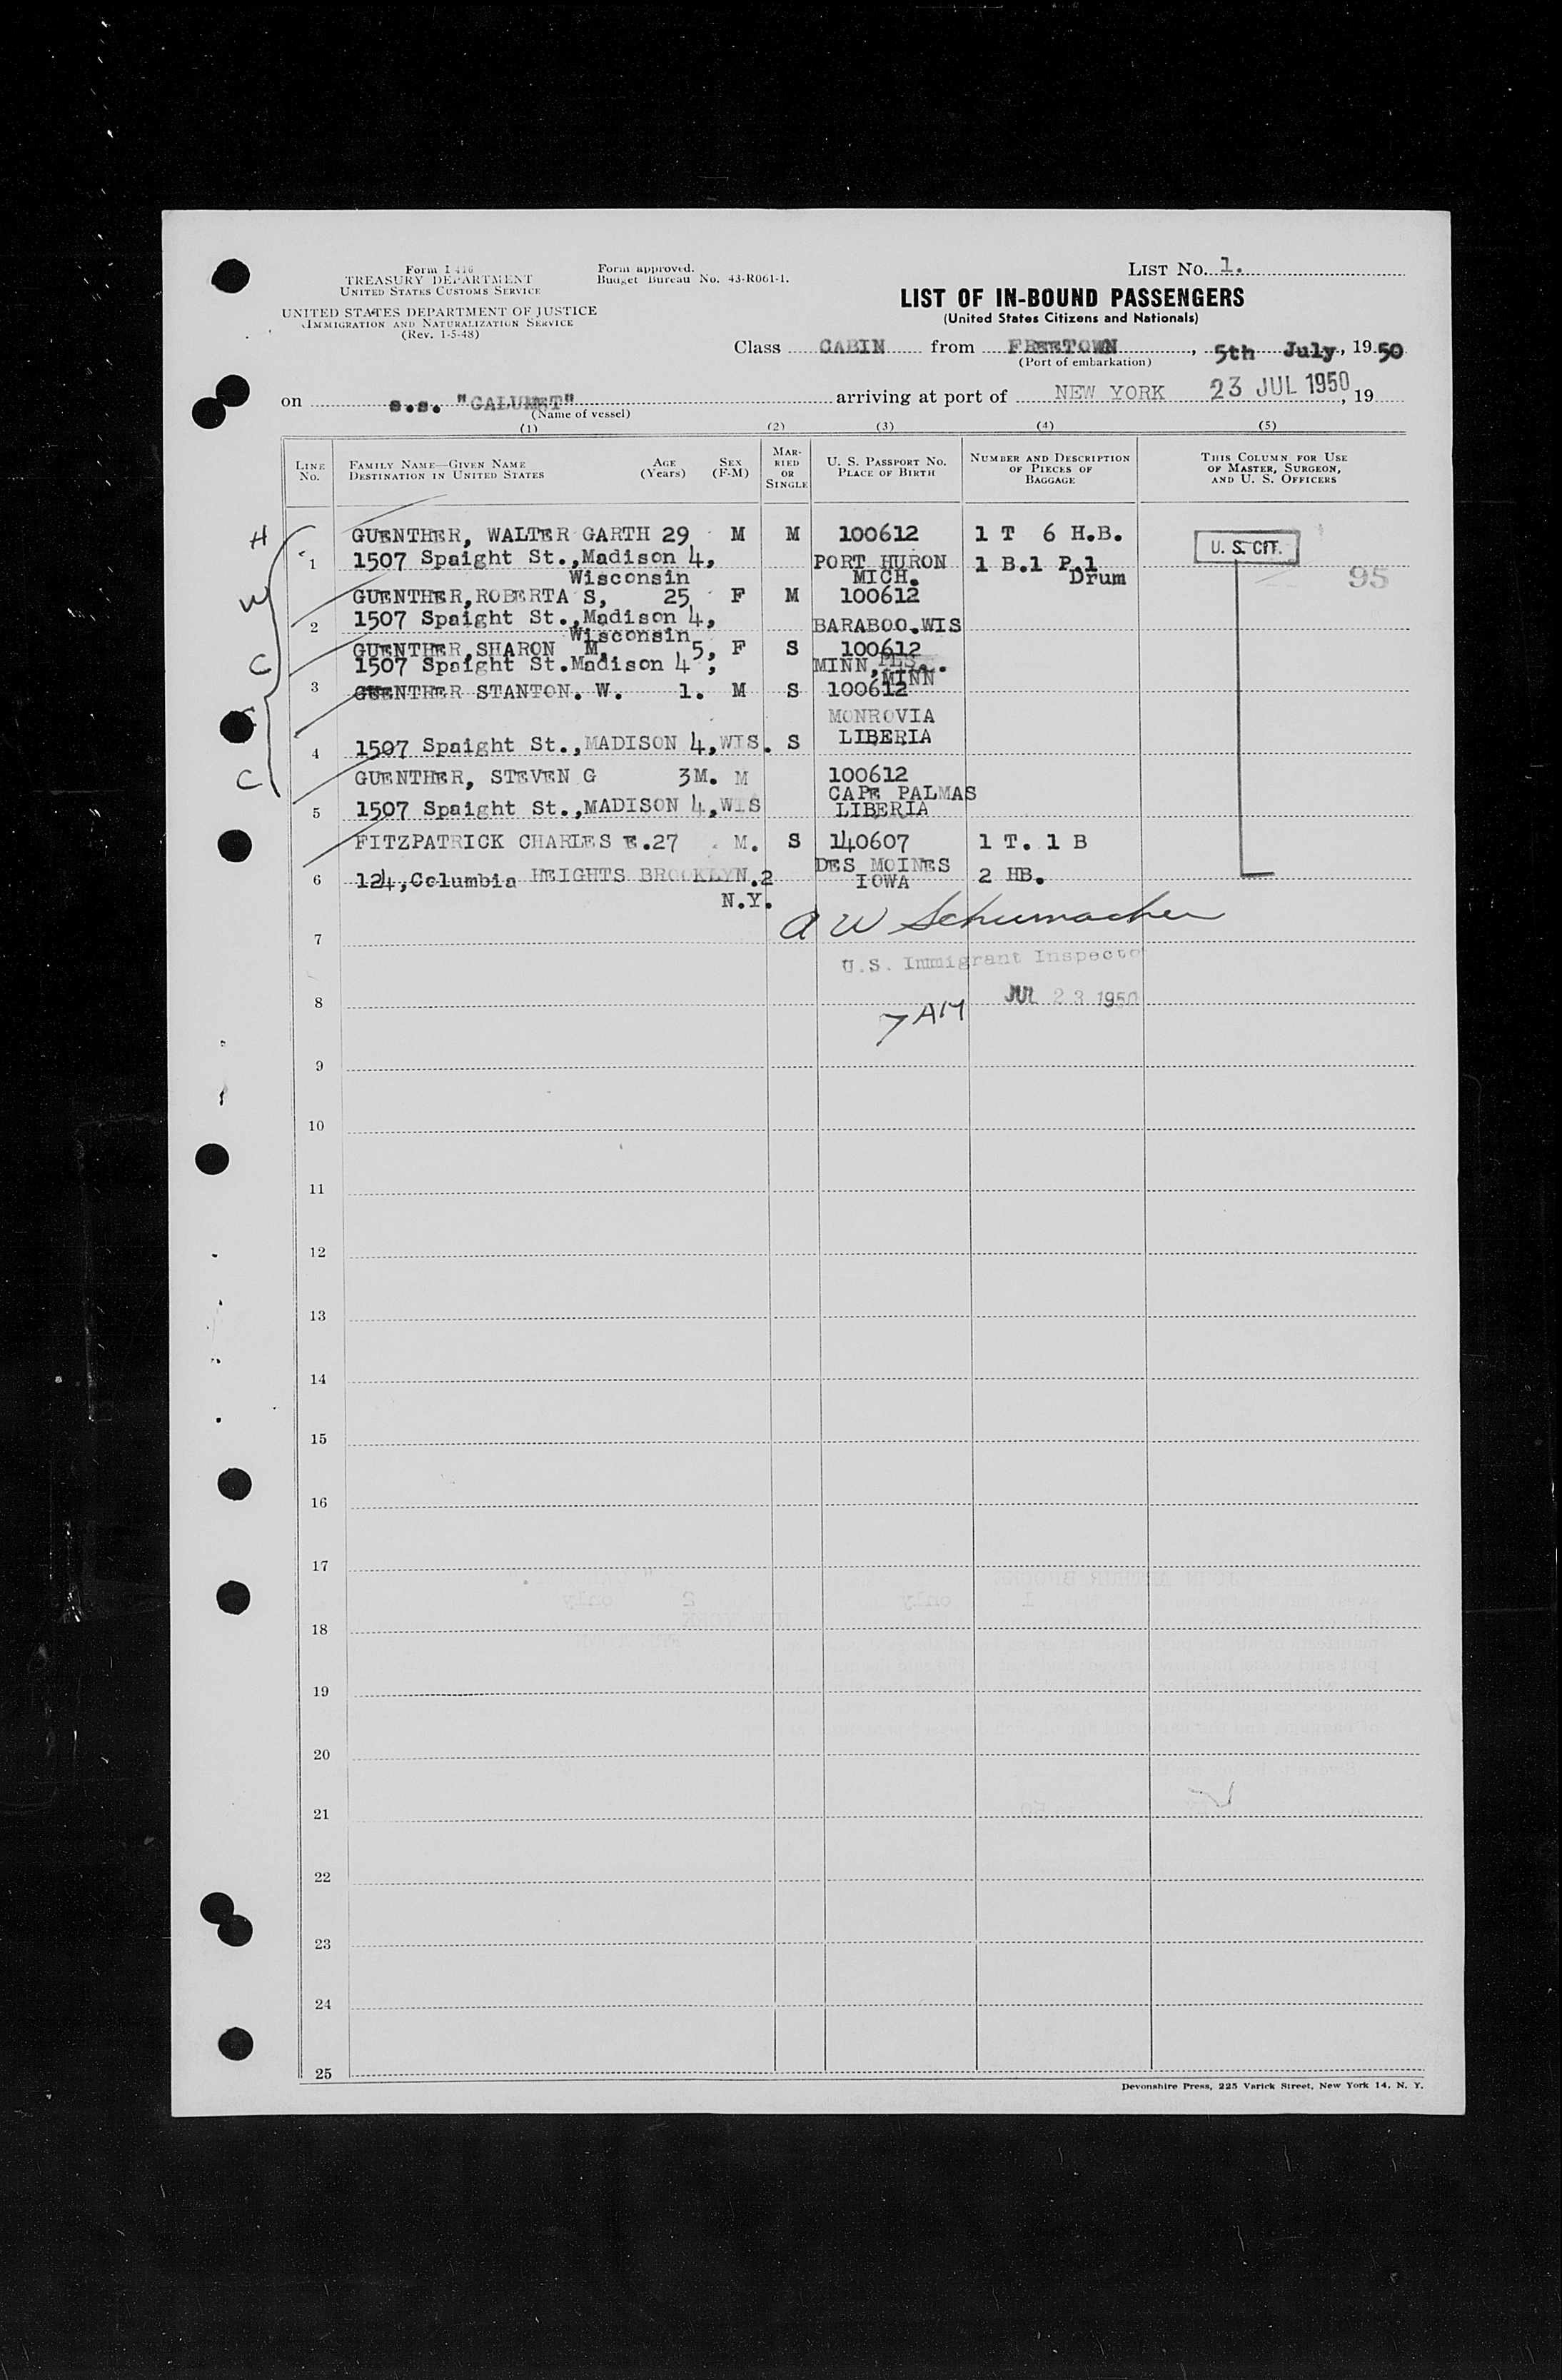 Form I 416
TREASURY DEPARTMENT
UNITED STATES CUSTOMS SERVICE
UNITED STATES DEPARTMENT OF JUSTICE
IMMIGRATION AND NATURALIZATION SERVICE
(Rev. 1-5-48)
Form approved.
Budget Bureau No. 43-R061-1.
LIST No. 1.
LIST OF IN-BOUND PASSENGERS
(United States Citizens and Nationals)
Class CABIN from FREETOWN, 5th July, 1950
(Port of embarkation)
on s.s. "CALUMET" arriving at port of NEW YORK 23 JUL 1950, 19
(Name of vessel)
(1) (2) (3) (4) (5)
LINE No.
FAMILY NAME—GIVEN NAME
DESTINATION IN UNITED STATES
AGE (Years)
SEX (F-M)
MAR-RIED OR SINGLE
U. S. PASSPORT NO.
PLACE OF BIRTH
NUMBER AND DESCRIPTION OF PIECES OF BAGGAGE
THIS COLUMN FOR USE OF MASTER, SURGEON, AND U. S. OFFICERS
H GUENTHER, WALTER GARTH 29 M M 100612 1 T 6 H.B.
U. S. CIT.
1 1507 Spaight St.,Madison 4, PORT HURON 1 B.1 P.1
Wisconsin MICH. Drum 95
W GUENTHER,ROBERTA S, 25 F M 100612
2 1507 Spaight St.,Madison 4, BARABOO.WIS
Wisconsin
GUENTHER,SHARON M, 5, F S 100612
C 1507 Spaight St.Madison 4, MINN,PLS..
MINN
3 GUENTHER STANTON. W. 1. M S 100612
MONROVIA
4 1507 Spaight St.,MADISON 4,WIS. S LIBERIA
C GUENTHER, STEVEN G 3M. M 100612
CAPE PALMAS
5 1507 Spaight St.,MADISON 4,WIS LIBERIA
FITZPATRICK CHARLES E.27 M. S 140607 1 T. 1 B
DES MOINES
6 124,Columbia HEIGHTS BROOKLYN.2 IOWA 2 HB.
N.Y.
A W Schumacher
7
U.S. Immigrant Inspecto
8 JUL 23 1950
7 AM
9
10
11
12
13
14
15
16
17
18
19
20
21
22
23
24
25
Devonshire Press, 225 Varick Street, New York 14, N. Y.